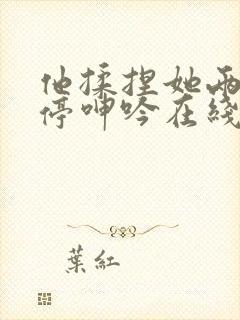 他揉捏她两
停呻吟在线
葉紅